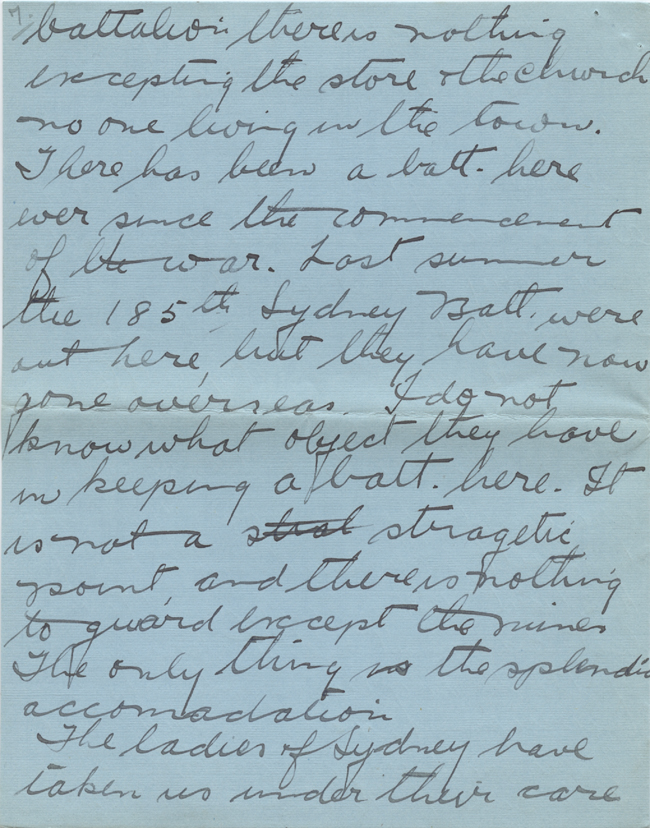 7.
battalion there is nothing
excepting the store & the church
no one living in the town.
There has been a batt. here
ever since the commencement
of the war. Last summer
the 185th Sydney Batt. were
out here, but they have now
gone overseas. I do not
know what object they have
in keeping a batt. here. It
is not a strat stragetic
point, and there is nothing
to guard except the mines
The only thing is the splendid
accomadation
The ladies of Sydney have
taken us under their care